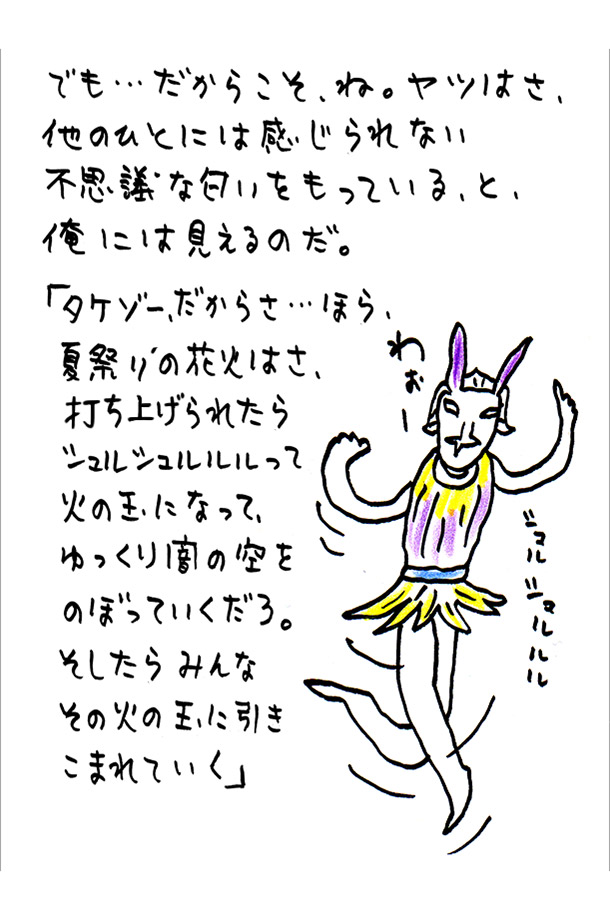 でも…だからこそ、ね。ヤツはさ、
他のひとには感じられない
不思議な匂いをもっている、と、
俺には見えるのだ。
「タケゾー、だからさ…ほら、
夏祭りの花火はさ、
打ち上げられたら
シュルシュルルルって
火の玉になって、
ゆっくり闇の空を
のぼっていくだろ。
そしたらみんな
その火の玉に引き
こまれていく」
わぉー
シュルシュルルル